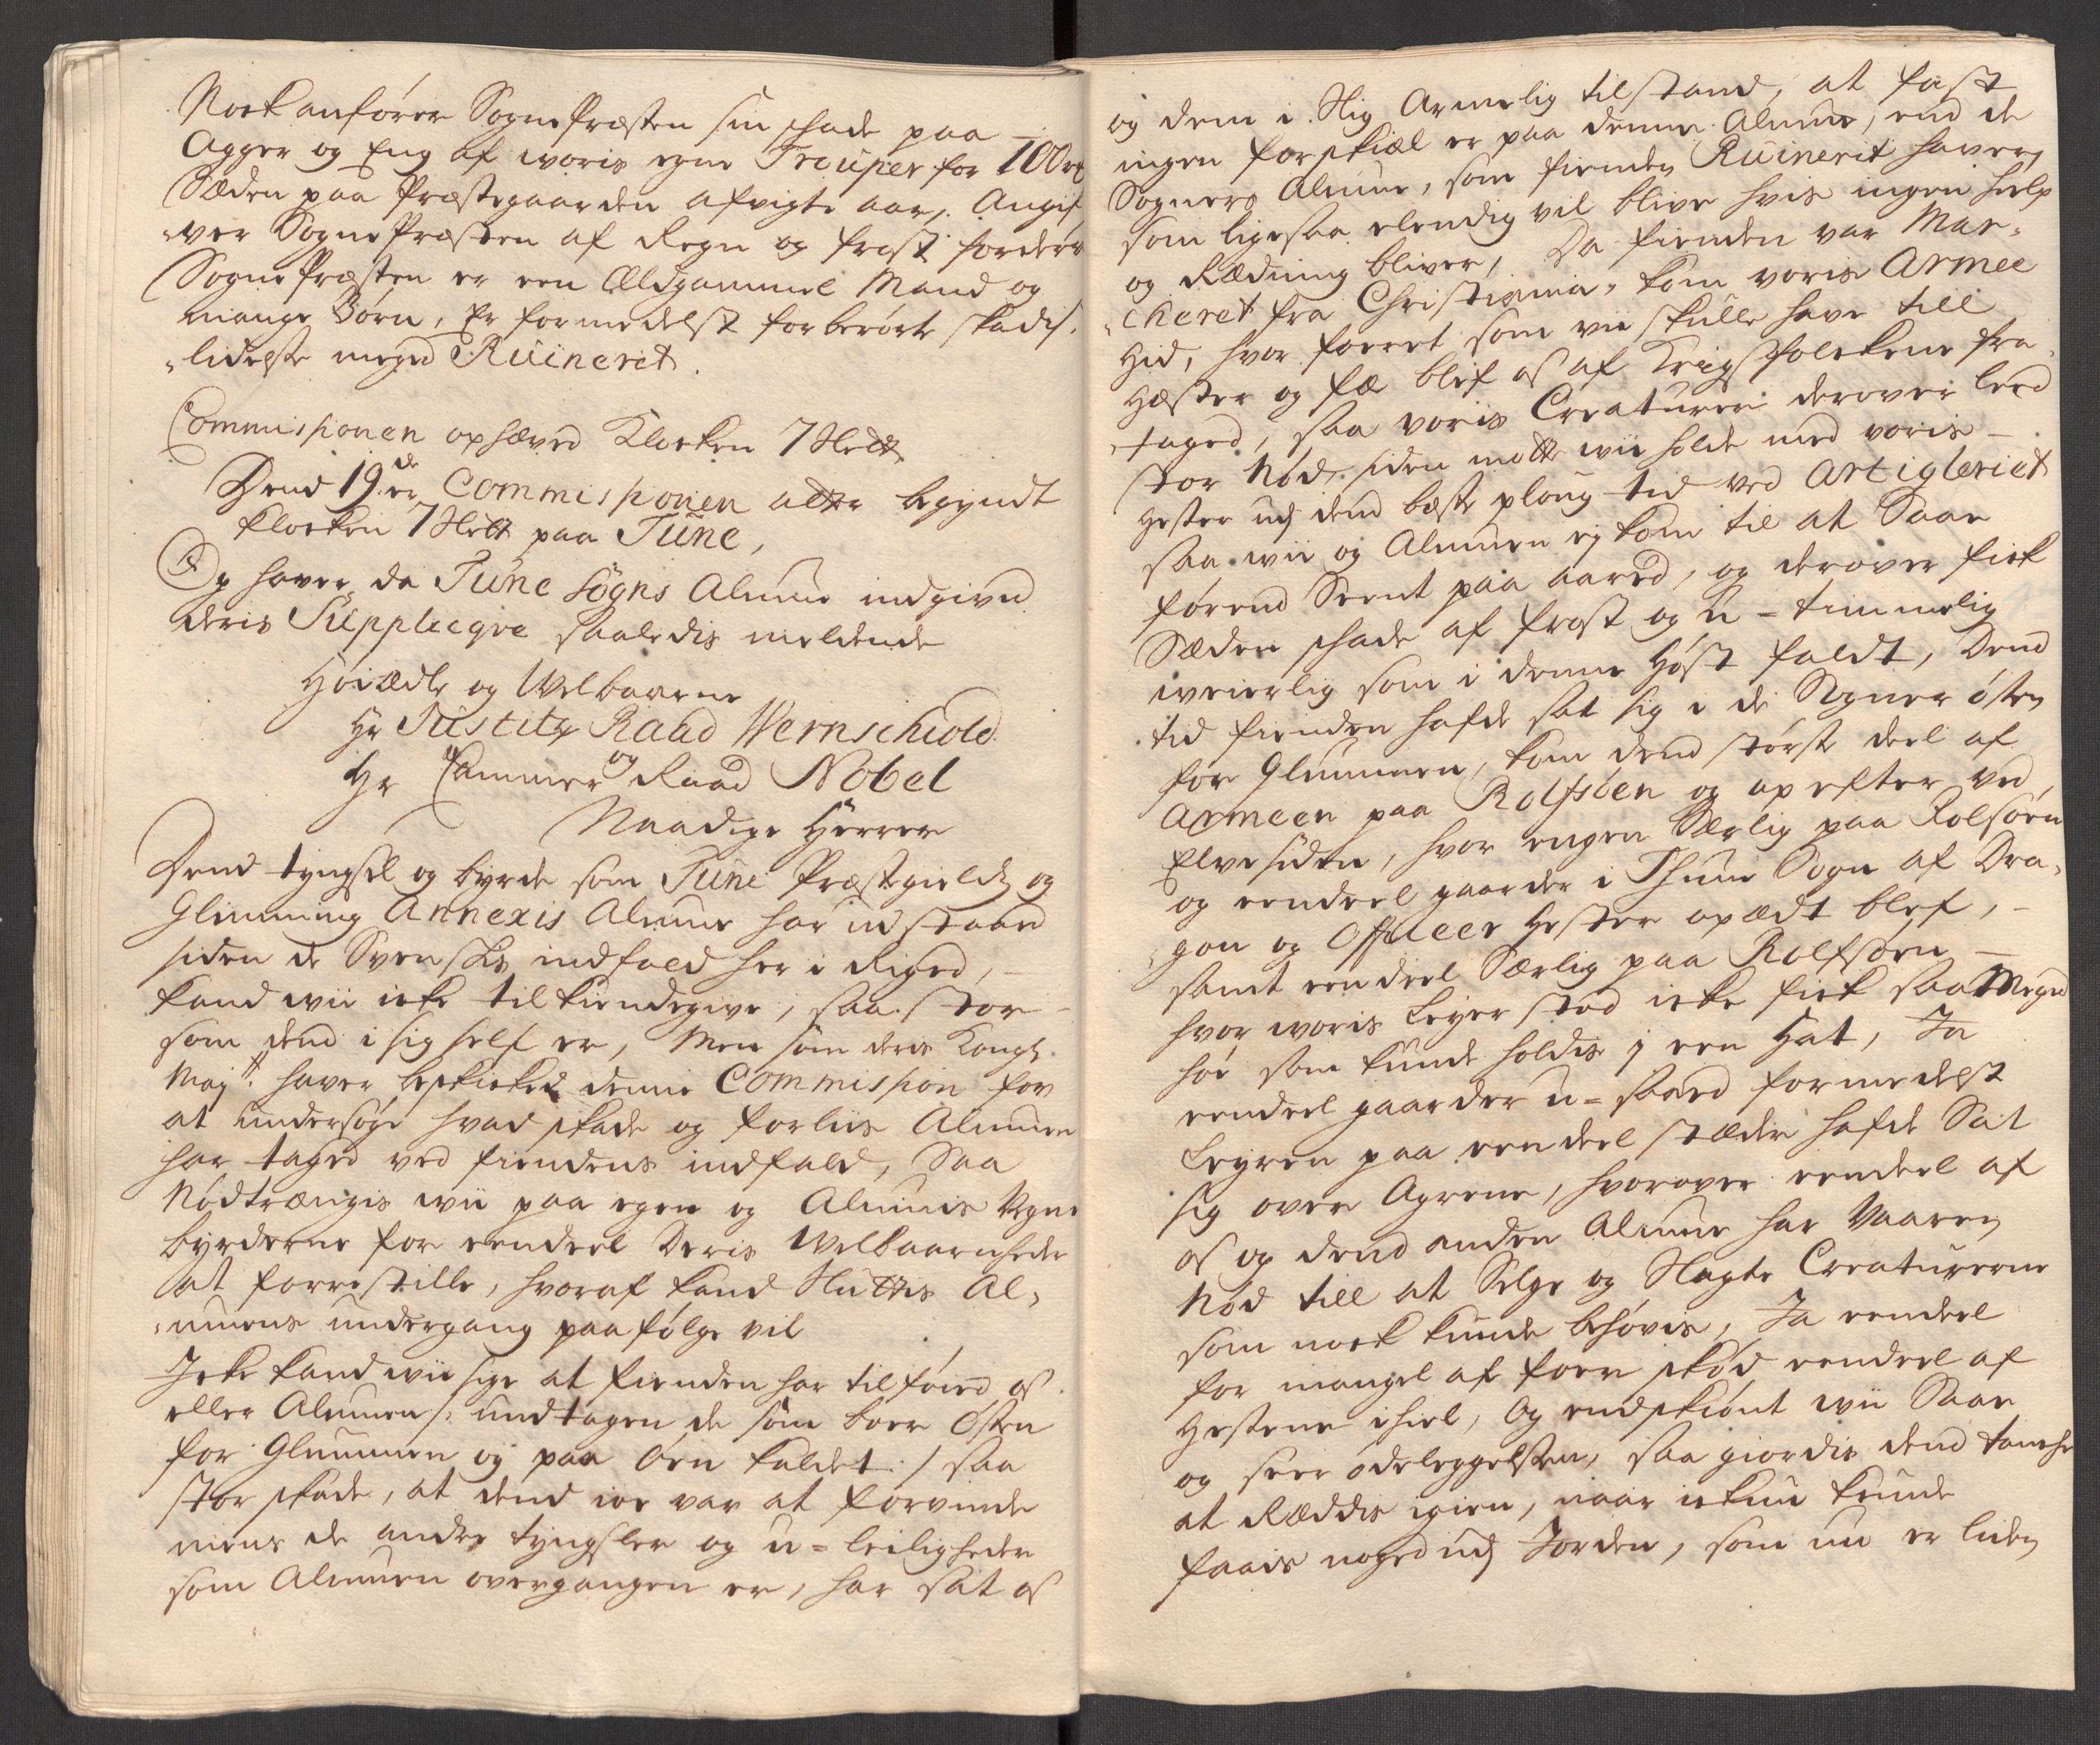 Nock anfører Sognepræsten sin schade paa
Agger og Eng af woris egne Trouper for 100 rd
Sæden paa Præstegaarden afvigte aar, Angif
„ver Sognepræsten af Regn og frost forderv
Sognepræsten er een Eldgammel Mand og
mange Børn, Er formedelst forberørte skadis
„lidelse meget Ruineret.
Commissionen ophæved Klocken 7 Slett
Dend 19de er Commissionen atter begyndt
klocken 7 Slett paa Tune,
Og haver da Tune Sogns Almue indgived
deris Supplicqve saaledis meldende
Høiædle og Velbaarne
Hr Justitz Raad Wernschiold
og
Hr Cammer Raad Nobel
Naadige Herrer
Dend tyngsel og byrde som Tune Præstegields og
Glimming Annexis Almue har udstaaed
siden de Svenskes indfald her i Riged,
kand wii icke tilkiendegive, saa stor
som dend i sig self er, Men som deris Kongl.
Maytt. haver beskicked denne Commission for
at undersøge hvad skade og forliis Almuen
har taged ved fiendens indfald, Saa
Nødtrængis wii paa egen og Almuis Vegne
byrderne for eendeel Deris Velbaarenheder
at forrestille, hvoraf kand sluttis Al„
„muens undergang paafølge vil
Icke kand wii sige at fienden har tilføied os
eller Almuen /: undtagen de som boer Østen
for Glummen og paa Øen kaldet :/ saa
stor skade, at dend ioe var at forvinde
mens de andre tyngsler og u-leiligheder
som Almuen overgangen er, har sat os
og dem i Slig Armelig tilstand, at fast
ingen forskiæl er paa denne Almue, end de
Sogners Almue, som fienden Ruinerit haver,
som ligesaa elendig vil blive hvis ingen hielp
og Rædning bliver, Da fienden var Mar„
„cheret fra Christiania, kom voris Armee
hid, hvor foeret som vii skulle have till
Hæster og fæ blef os af Krigsfolckene fra
taged, saa voris Creaturer derover leed
stor Nød, siden motte wii holde med voris
Hester udj dend beste ploug-tid ved Artigleriet
saa wii og Almuen ej kom til at Saae
førend Seent paa aared, og derover fick
Sæden schade af frost og u-timmelig
weierlig som i denne Høst faldt, Dend
tid fienden hafde sat sig i de Sogner østen
for Glummen, kom dend største deel af
Armeen paa Rolfsøen og op efter ved
Elvesiden, hvor engen Særlig paa Rolsøen
og eendeel gaarder i Thune Sogn af Dra„
„gon og Officeer Hester opædt blef,
samt eendeel Særlig paa Rolfsøen
hvor woris Leyer stod icke fick saa Meged
høe som kunde holdis i een Hat, Ja
eendeel gaarder u-saaed formedelst
Leyren paa eendeel stæder hafde Sat
sig over Agrene, hvorover eendeel af
os og dend anden Almue har Vaaren
Nød till at Selge og Slagte Creaturerne
som nock kunde behøves, Ja eendeel
for mangel af foer skød eendeel af
Hestene ihiel, Og endskiønt wii Saae
og seer ødeleggelsen, saa giordis dend tancke
at Ræddis igien, naar ickun kunde
faais noged udj Jorden, som nu er liden